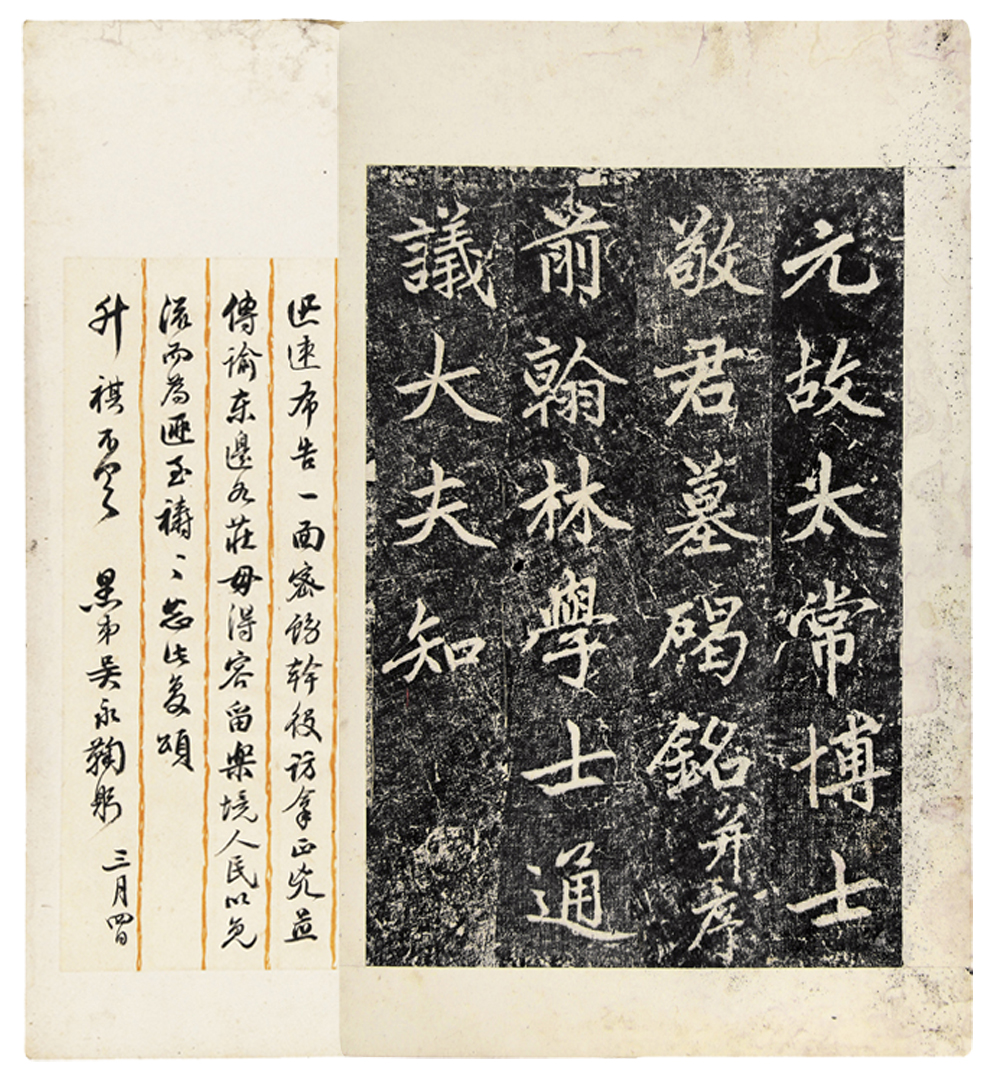 元故太常博士
敬君墓碣銘并序
前翰林學士通
議大夫知
迅速布告一面密飭幹役訪拿正兇並
傳諭東邊各莊毋得容留樂境人民以免
滋而為匪至禱〻此复頌
升祺不宣 愚弟吴永鞠躬 三月四日